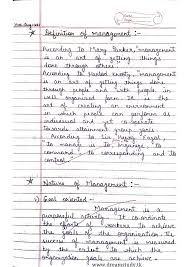 * Definition of Management :-
According to Mary Parker, management
is an art of getting things
done through others.
According to Harold Koontz, management
is an art of getting things done
through people and with people in
well organised form. It is the
art of creating an environment
in which people can perform as
individual and yet co-operate
towards attainment group goals
According to Sir Henry Fayol
to manage is to
command to corresponding and to
control.
* Nature of Management :-
1) Goal oriented -
Management is a
purposeful activity. It coordinate
the efforts of workers to achieve
the goals of the organisation. The
success of management is measured
by the extent to which the
organisation goals are achieve.